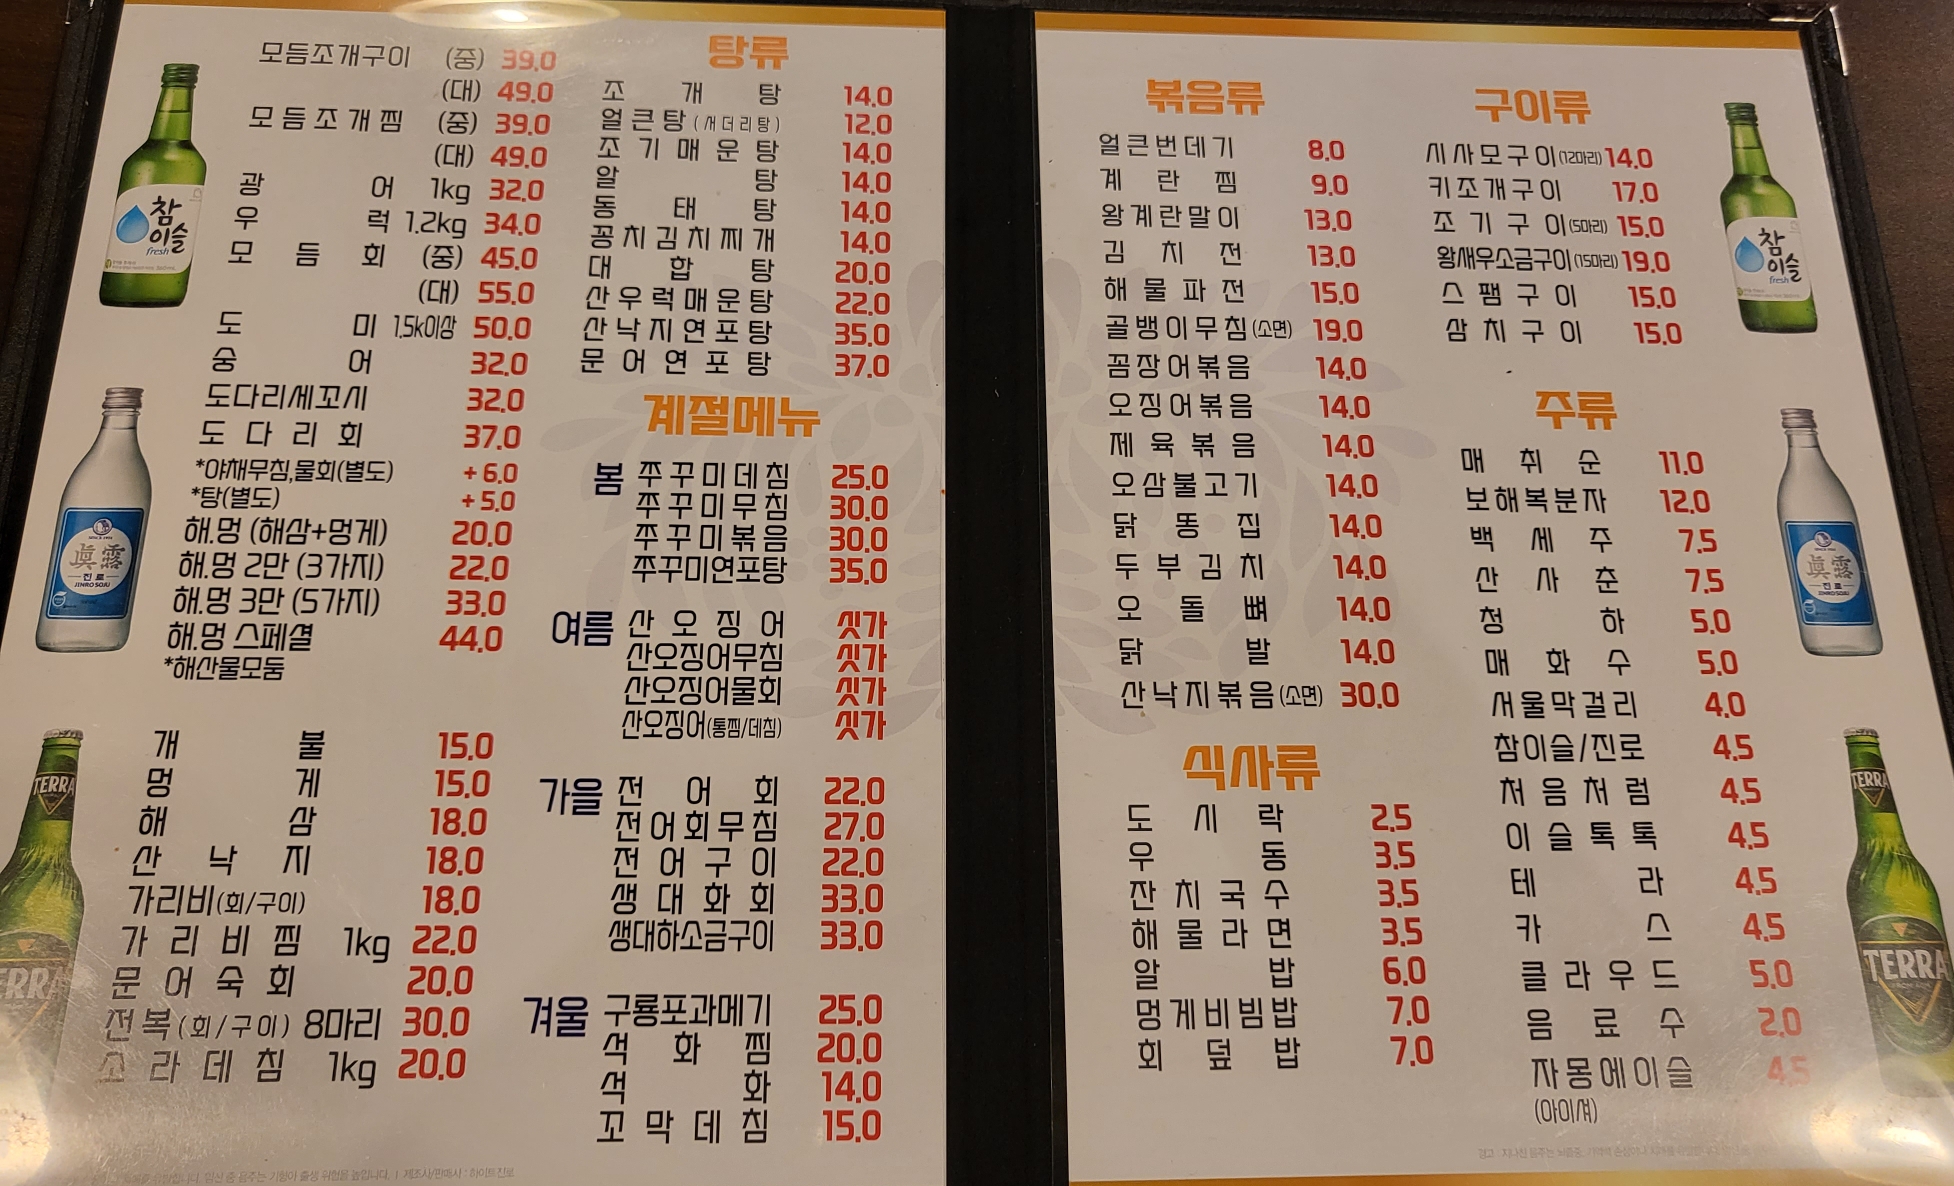 모듬조개구이 (중) 39.0
(대) 49.0
모듬조개찜 (중) 39.0
(대) 49.0
광어 1kg 32.0
우럭 1.2kg 34.0
모듬회 (중) 45.0
(대) 55.0
도미 1.5k이상 50.0
숭어 32.0
도다리세꼬시 32.0
도다리회 37.0
*야채무침,물회(별도) +6.0
*탕(별도) +5.0
해.멍 (해삼+멍게) 20.0
해.멍 2만 (3가지) 22.0
해.멍 3만 (5가지) 33.0
해.멍 스페셜 44.0
*해산물모둠
개불 15.0
멍게 15.0
해삼 18.0
산낙지 18.0
가리비(회/구이) 18.0
가리비찜 1kg 22.0
문어숙회 20.0
전복(회/구이) 8마리 30.0
소라데침 1kg 20.0
탕류
조개탕 14.0
얼큰탕(서더리탕) 12.0
조기매운탕 14.0
알탕 14.0
동태탕 14.0
꽁치김치찌개 14.0
대합탕 20.0
산우럭매운탕 22.0
산낙지연포탕 35.0
문어연포탕 37.0
계절메뉴
봄 쭈꾸미데침 25.0
쭈꾸미무침 30.0
쭈꾸미볶음 30.0
쭈꾸미연포탕 35.0
여름 산오징어 싯가
산오징어무침 싯가
산오징어물회 싯가
산오징어(통찜/데침) 싯가
가을 전어회 22.0
전어회무침 27.0
전어구이 22.0
생대화회 33.0
생대하소금구이 33.0
겨울 구룡포과메기 25.0
석화찜 20.0
석화 14.0
꼬막데침 15.0
볶음류
얼큰번데기 8.0
계란찜 9.0
왕계란말이 13.0
김치전 13.0
해물파전 15.0
골뱅이무침(소면) 19.0
꼼장어볶음 14.0
오징어볶음 14.0
제육볶음 14.0
오삼불고기 14.0
닭똥집 14.0
두부김치 14.0
오돌뼈 14.0
닭발 14.0
산낙지볶음(소면) 30.0
식사류
도시락 2.5
우동 3.5
잔치국수 3.5
해물라면 3.5
알밥 6.0
멍게비빔밥 7.0
회덮밥 7.0
구이류
시사모구이(12마리) 14.0
키조개구이 17.0
조기구이(5마리) 15.0
왕새우소금구이(15마리) 19.0
스팸구이 15.0
삼치구이 15.0
주류
매취순 11.0
보해복분자 12.0
백세주 7.5
산사춘 7.5
청하 5.0
매화수 5.0
서울막걸리 4.0
참이슬/진로 4.5
처음처럼 4.5
이슬톡톡 4.5
테라 4.5
카스 4.5
클라우드 5.0
음료수 2.0
자몽에이슬 4.5
(아이셔)
참이슬
fresh
眞露
진로
JINRO SOJU
TERRA
TERRA
참이슬
fresh
眞露
진로
JINRO SOJU
TERRA
TERRA